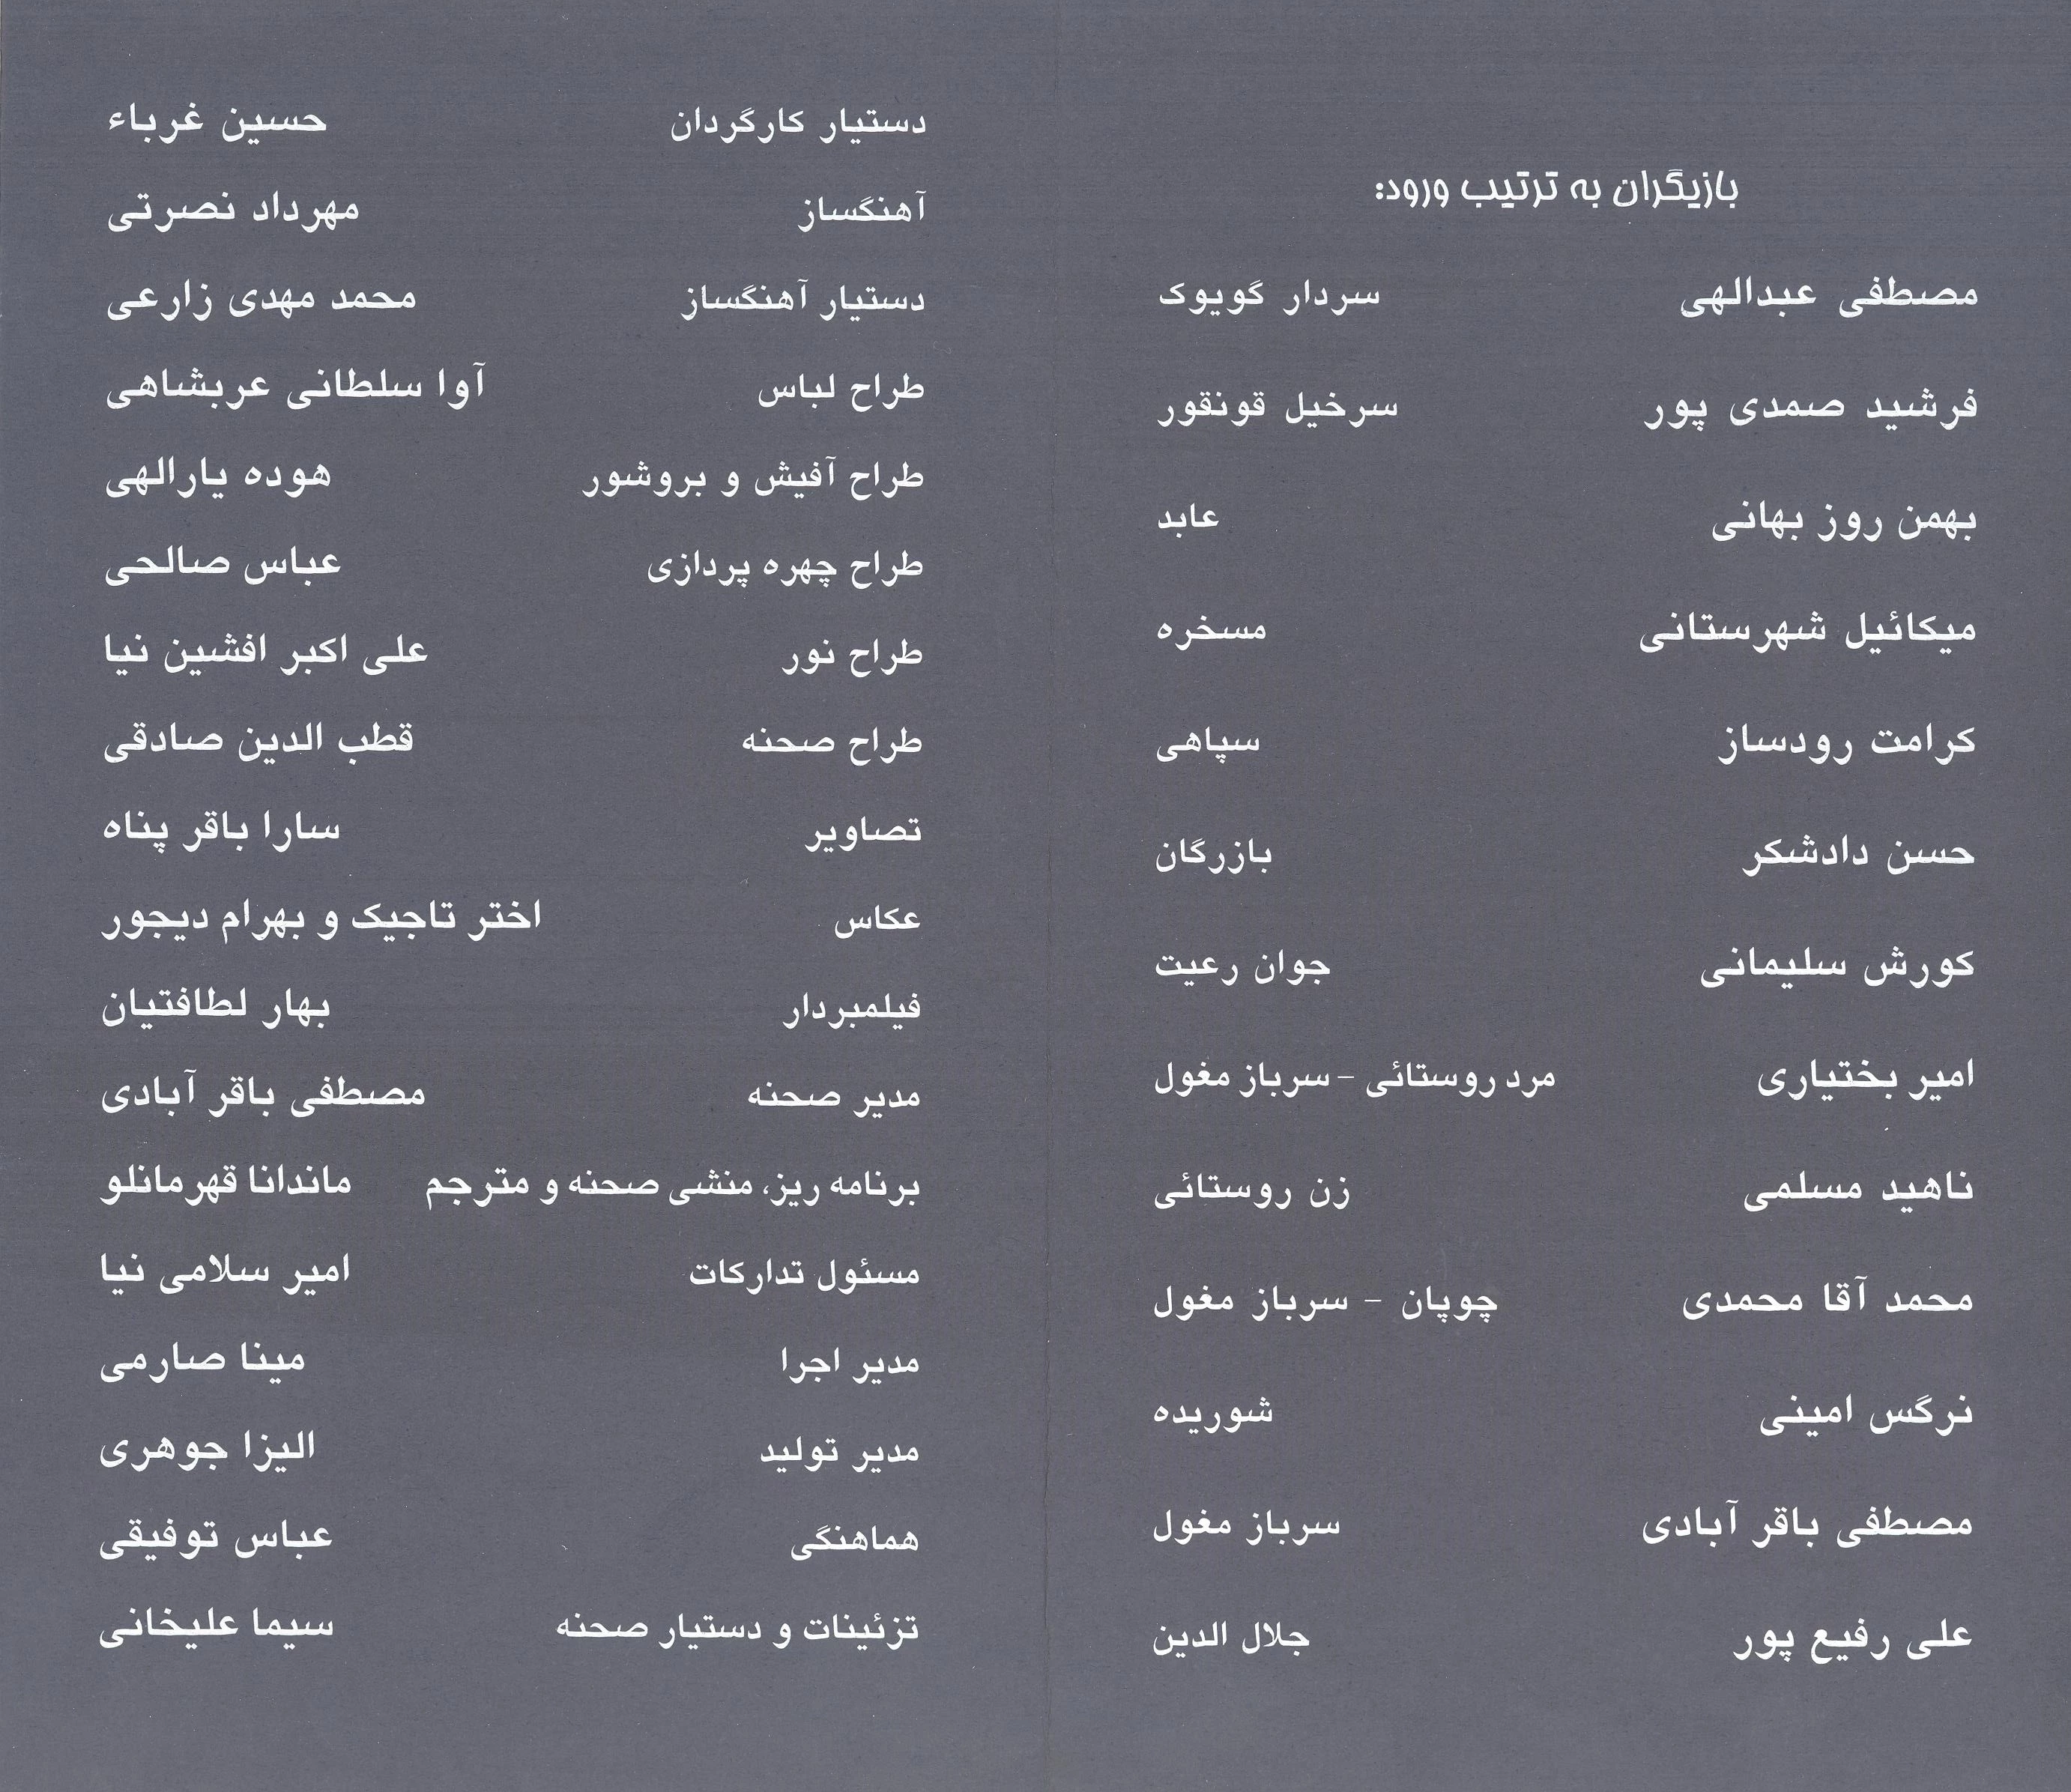 بازیگران به ترتیب ورود:
مصطفی عبدالهی سردار گویوک
فرشید صمدی پور سرخیل قونقور
بهمن روز بهانی عابد
میکائیل شهرستانی مسخره
کرامت رودساز سپاهی
حسن دادشکر بازرگان
کورش سلیمانی جوان رعیت
امیر بختیاری مرد روستائی – سرباز مغول
ناهید مسلمی زن روستائی
محمد آقا محمدی چوپان – سرباز مغول
نرگس امینی شوریده
مصطفی باقر آبادی سرباز مغول
علی رفیع پور جلال الدین
دستیار کارگردان حسین غرباء
آهنگساز مهرداد نصرتی
دستیار آهنگساز محمد مهدی زارعی
طراح لباس آوا سلطانی عربشاهی
طراح آفیش و بروشور هوده یارالهی
طراح چهره پردازی عباس صالحی
طراح نور علی اکبر افشین نیا
طراح صحنه قطب الدین صادقی
تصاویر سارا باقر پناه
عکاس اختر تاجیک و بهرام دیجور
فیلمبردار بهار لطافتیان
مدیر صحنه مصطفی باقر آبادی
برنامه ریز، منشی صحنه و مترجم ماندانا قهرمانلو
مسئول تدارکات امیر سلامی نیا
مدیر اجرا مینا صارمی
مدیر تولید الیزا جوهری
هماهنگی عباس توفیقی
تزئینات و دستیار صحنه سیما علیخانی